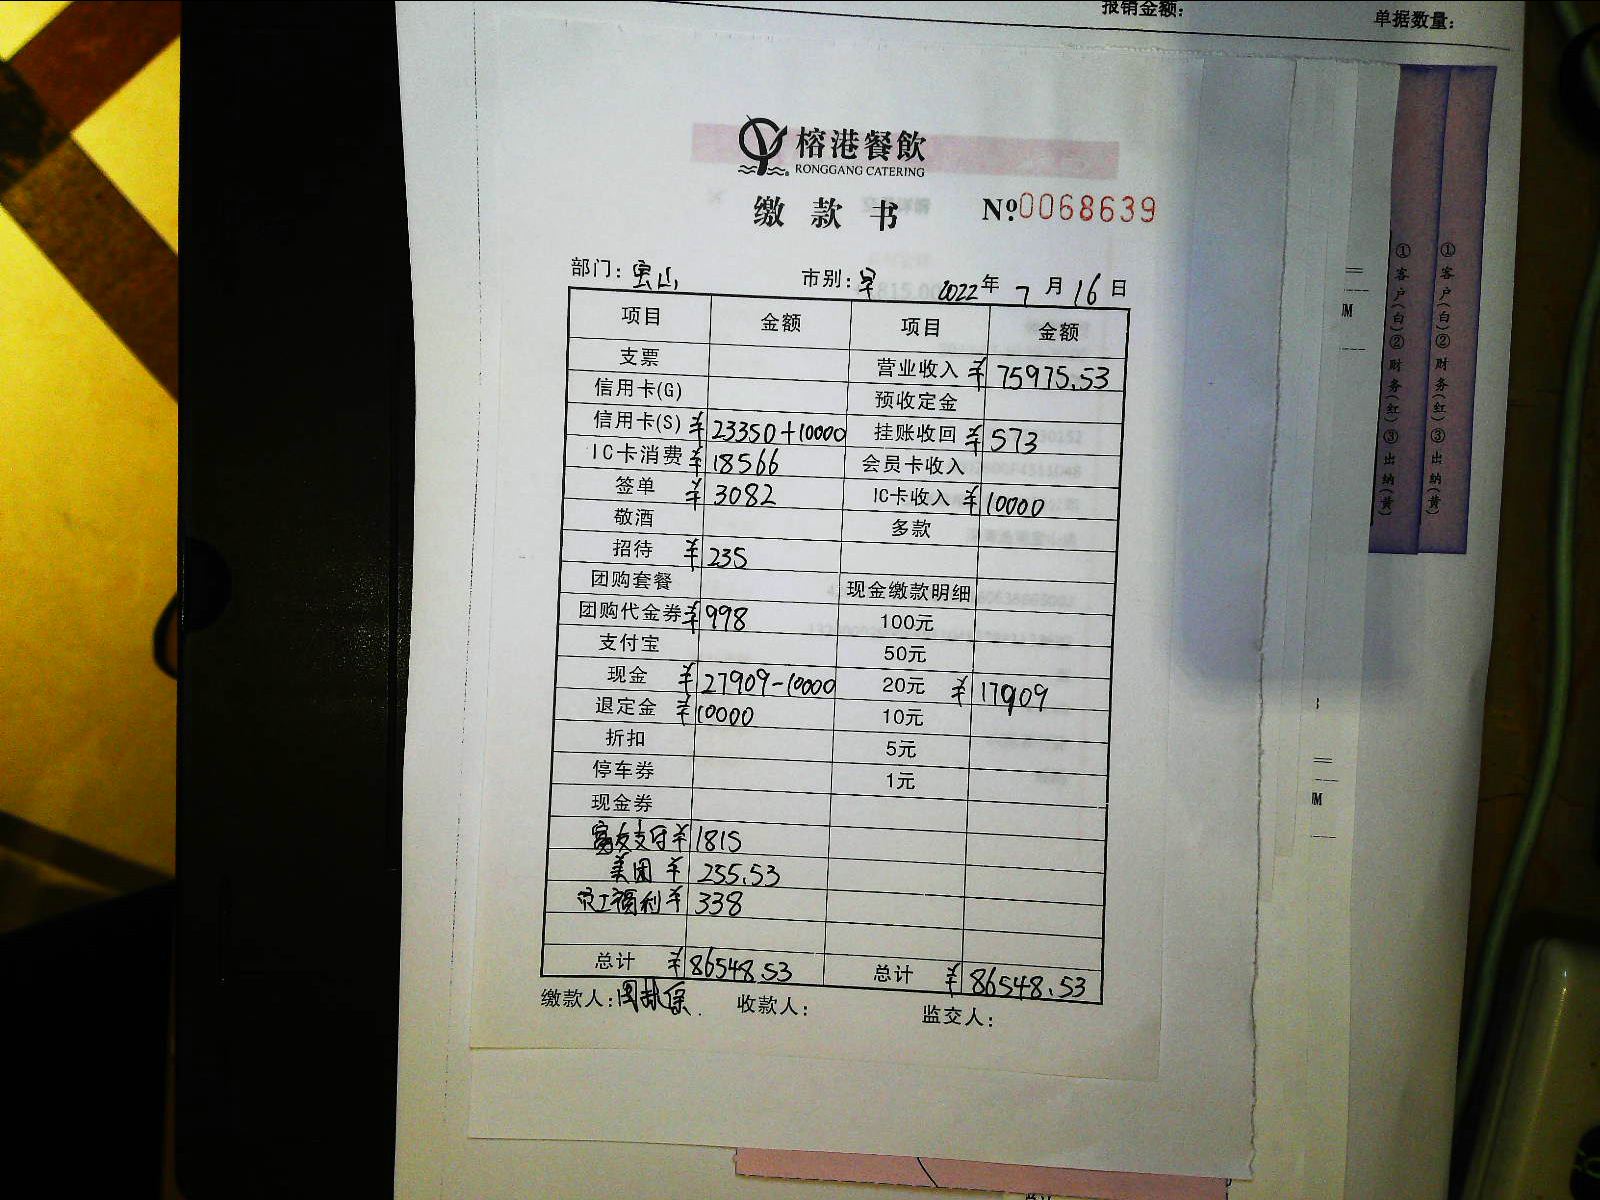 报销金额:
单据数量:
榕港餐飲
RONGGANG CATERING
缴款书 №0068639
部门: 宝山 市别: 早 2022年7月16日
项目 金额 项目 金额
支票 营业收入 ¥75975.53
信用卡(G) 预收定金
信用卡(S) ¥23350+10000 挂账收回 ¥573
IC卡消费 ¥18566 会员卡收入
签单 ¥3082 IC卡收入 ¥10000
敬酒 多款
招待 ¥235
团购套餐 现金缴款明细
团购代金券 ¥998 100元
支付宝 50元
现金 ¥27909-10000 20元 ¥17909
退定金 ¥10000 10元
折扣 5元
停车券 1元
现金券
支付 ¥1815
美团 ¥255.53
员工福利 ¥338
总计 ¥86548.53 总计 ¥86548.53
缴款人: 收款人: 监交人:
①客户(白)②财务(红)③出纳(黄)
①客户(白)②财务(红)③出纳(黄)